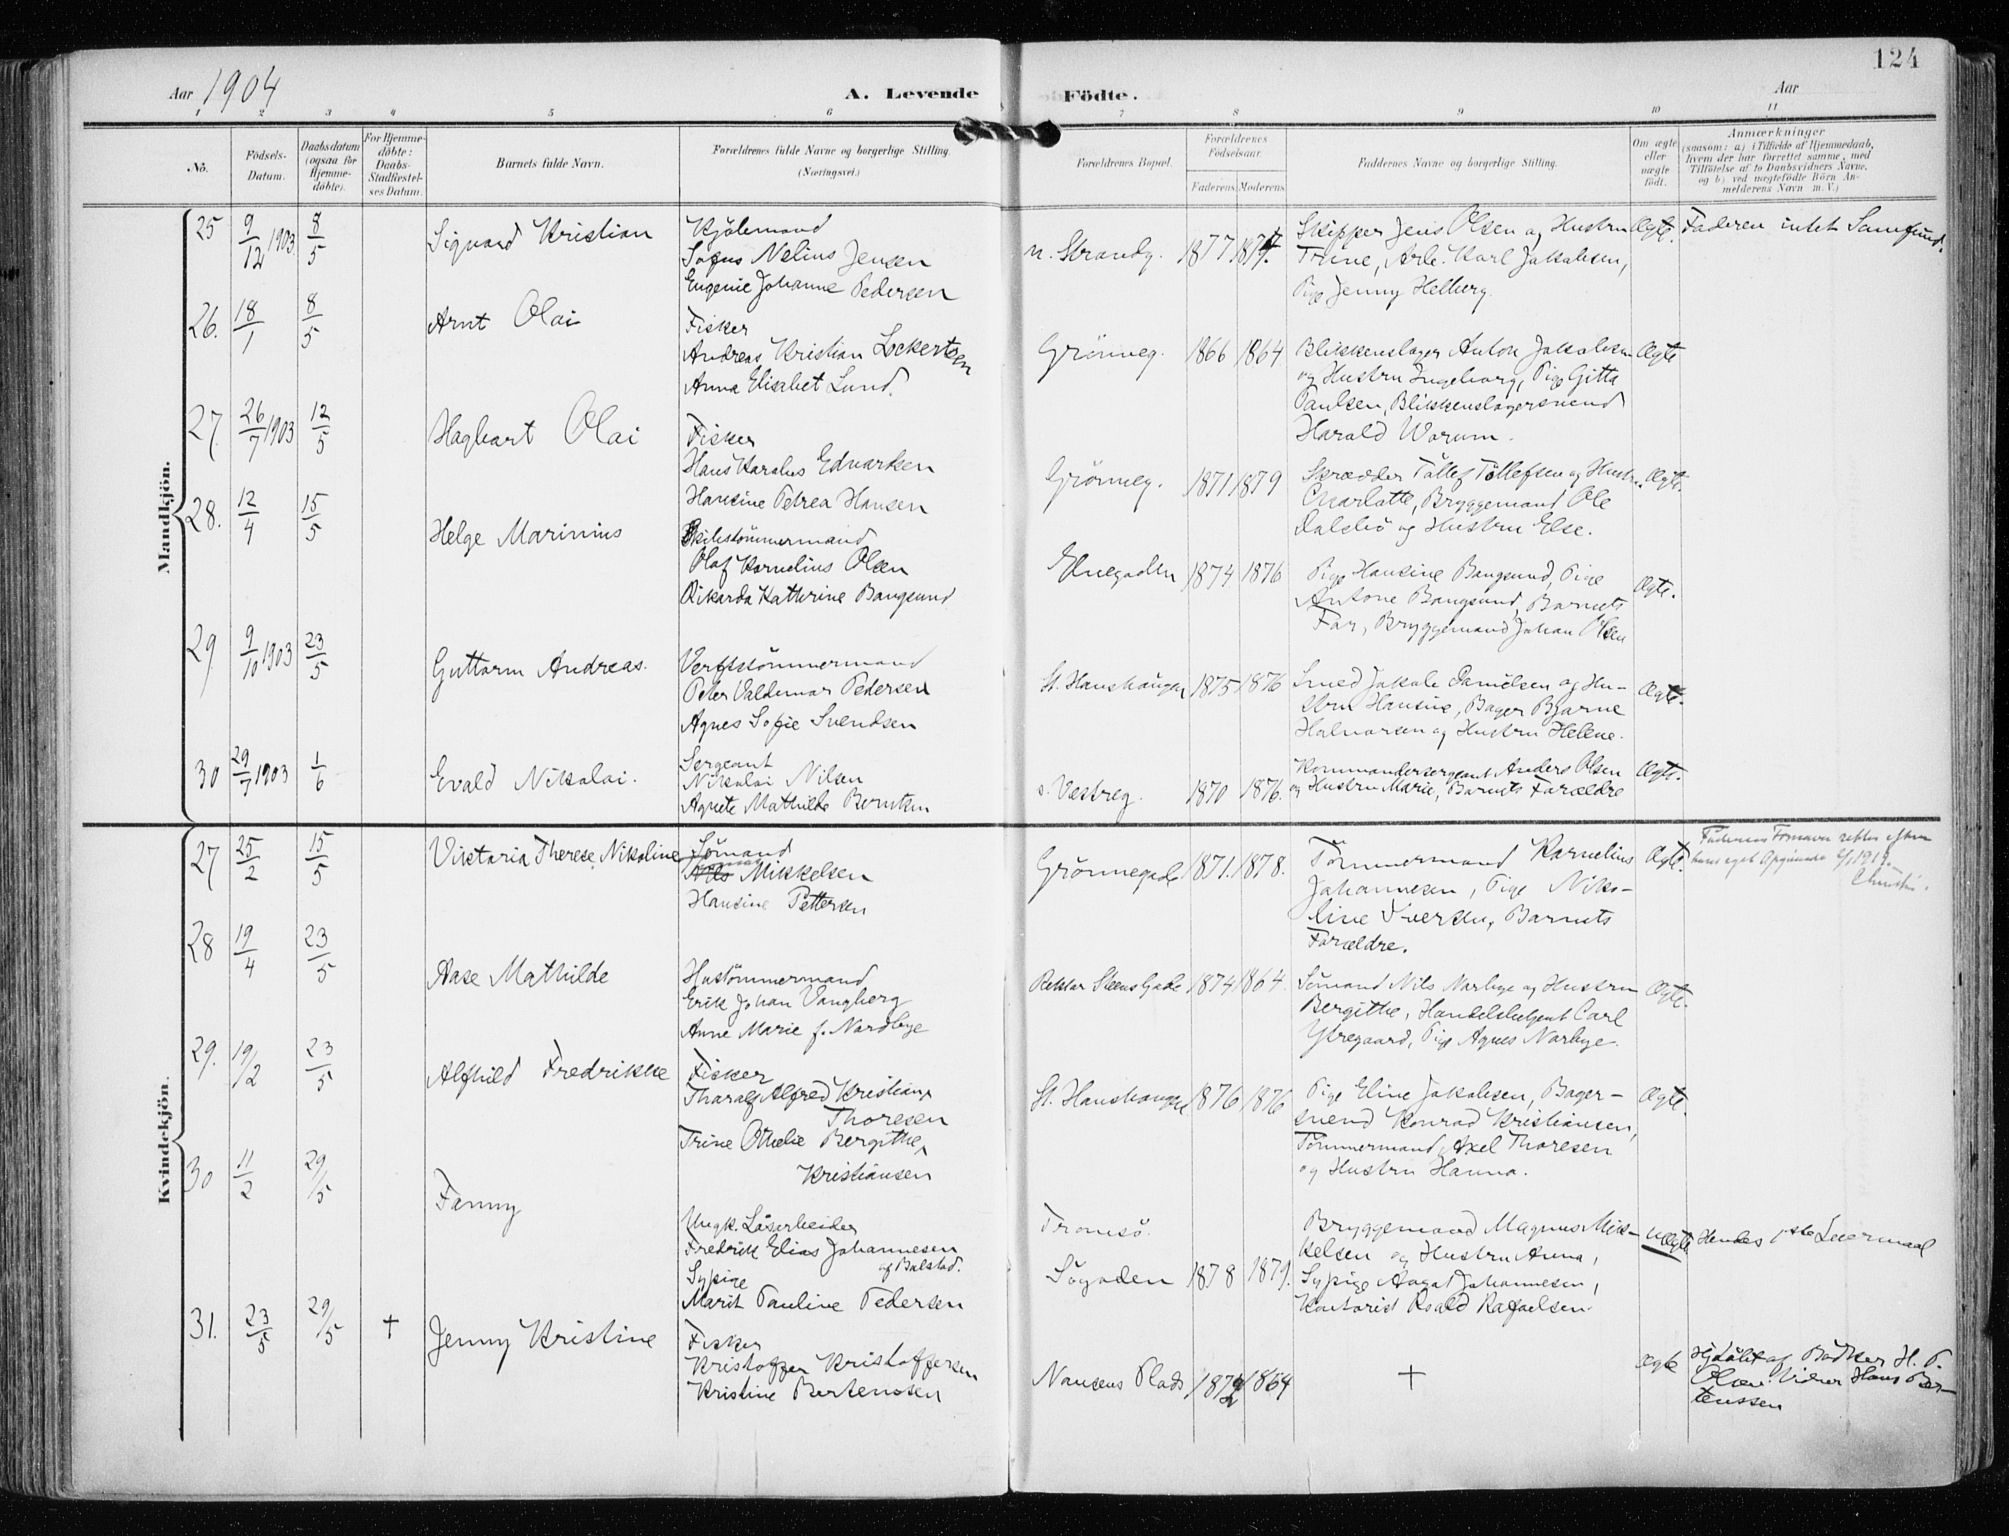 124
Aar 1904
A. Levende
Födte.
Aar
1 2 3 4 5 6 7 8 9 10 11
No.
Födsels-
Datum.
Daabsdatum
(ogsaa for
Hjemme-
döbte).
For Hjemme-
döbte:
Daabs-
Stadfæstel-
ses Datum.
Barnets fulde Navn.
Forældrenes fulde Navne og borgerlige Stilling.
(Næringsvei.)
Forældrenes Bopæl.
Forældrenes
Födselsaar.
Faderens
Moderens
Faddernes Navne og borgerlige Stilling.
Om ægte
eller
uægte
födt.
Anmærkninger
(saasom: a) i Tilfælde af Hjemmedaab,
hvem der har forrettet samme, med
Tilföielse af to Daabsvidners Navne,
og b) ved uægtefödte Börn An-
melderens Navn m. V.)
Mandkjön.
25 9/12 1903 8/5 Sigvard Kristian
Sofus Nelius Jensen
Eugenie Johanne Pedersen
n. Strandg. 1877
Skipper Jens Olsen og Hustru
Trine, Arb. Karl Jakobsen,
Pige Jenny Helberg.
Ægte.
Faderen intet Samfund.
26. 18/1 8/5 Arnt Olai
Fisker
Andreas Kristian Lockertsen
Anna Elisabet Lund.
Grönneg. 1866 1864
Blikkenslager Anton Jakobsen
og Hustru Ingeborg, Pige Gitta
Paulsen, Blikkenslagersvend
Harald Worum.
Ægte
27. 26/7 1903 12/5 Hagbart Olai
Fisker
Hans Karolus Edvartsen
Hansine Petrea Hansen
Grönneg. 1871 1879
Skrædder Tollef Tollefsen og Hustru
Charlotte, Bryggemand Ole
Dalsbö og Hustru Else.
Ægte.
28. 12/4 15/5 Helge Marinius
Skibstömmermand
Olaf Kornelius Olsen
Rikarda Kathrine Bangsund
Elvegaden 1874 1876
Pige Hansine Bangsund, Pige
Antone Bangsund, Barnets
Far, Bryggemand Johan Olsen
Ægte.
29 9/10 1903 23/5 Guttorm Andreas.
Verftstömmermand
Peter Valdemar Pedersen
Agnes Sofie Svendsen
St. Hanshaugen 1875 1876
Smed Jakob Danielsen og Hu-
stru Hansine, Bager Bjarne
Halvorsen og Hustru Helene.
Ægte.
30 29/7 1903 1/6 Evald Nikolai.
Sergeant
Nikolai Nilsen
Agnete Mathilde Berntsen
s. Vestreg. 1870 1876.
Kommandersergeant Anders Olsen
og Hustru Marie, Barnets Forældre
Ægte.
Kvindekjön.
27 25/2 15/5 Viktoria Therese Nikoline
Sömand
Nils Mikkelsen
Hansine Pettersen
Grönnegade 1871. 1878.
Tömmermand Kornelius
Johannesen, Pige Niko-
line Iversen, Barnets
Forældre.
Ægte.
Faderens Fornavn rettet efter
hans eget Opgivende 1919.
28 19/4 23/5 Aase Mathilde
Hustömmermand
Erik Johan Vangberg
Anne Marie f. Nordbye
Rektor Steens Gade 1874 1864.
Sömand Nils Norbye og Hustru
Bergitte, Handelsbetjent Carl
Ytregaard, Pige Agnes Norbye.
Ægte.
29. 19/2 23/5 Alfhild Fredrikke
Fisker
Tharald Alfred Kristian
Thoresen
Trine Othelie Bergithe
Kristiansen
St. Hanshaugen 1876 1876
Pige Eline Jakobsen, Bager-
svend Konrad Kristiansen,
Tömmermand Axel Thoresen
og Hustru Hanna.
Ægte.
30 11/2 29/5 Fanny
Ungk. Lösarbeider
Fredrik Elias Johannesen
af Balstad.
Sypige
Marit Pauline Pedersen
Tromsö.
Sögaden 1878 1879.
Bryggemand Magnus Mik-
kelsen og Hustru Anna,
Sypige Aagot Johannesen,
Kontorist Roald Rafaelsen.
Uægte
Hendes 1ste Leiermaal
31. 23/5 29/5 + Jenny Kristine
Fisker
Kristoffer Kristoffersen
Kristine Bertenosen
Nansens Plads 1864
+
Ægte
Hjdöbt af Bödker H. P.
Olsen. Vidner Hans Ber-
tenssen